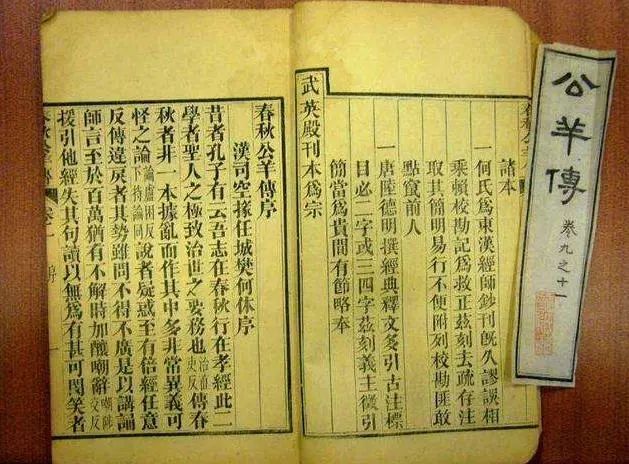 公羊傳
卷九之十一
諸本
一何氏爲東漢經師鈔刊旣久謬誤相
乘頼校勘記爲救正茲刻去疏存注
取其簡明易行不便附列校勘匪敢
點竄前人
一唐陸德明撰經典釋文多引古注標
目必二字或三四字茲刻義主徵引
簡當爲貴間有節略本
武英殿刊本爲宗
春秋公羊傳序
漢司空掾任城樊何休序
昔者孔子有云吾志在春秋行在孝經此二
學者聖人之極致治世之要務也治直吏反傳春
秋者非一本據亂而作其中多非常異義可
怪之論論盧困反下持論同說者疑惑至有倍經任意
反傳違戾者其勢雖問不得不廣是以講誦
師言至於百萬猶有不解時加釀嘲辭嘲陟交反
援引他經失其句讀以無爲有甚可閔笑者